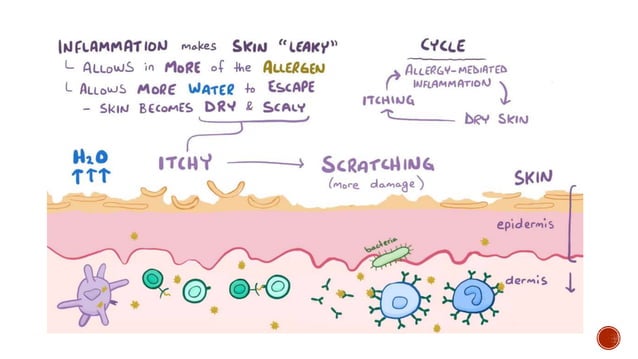 INFLAMMATION makes SKIN "LEAKY"
└ ALLOWS in MORE of the ALLERGEN
└ ALLOWS MORE WATER to ESCAPE
- SKIN BECOMES DRY & SCALY
CYCLE
ALLERGY-MEDIATED
INFLAMMATION
ITCHING
DRY SKIN
H2O
↑↑↑
ITCHY → SCRATCHING
(more damage)
SKIN
epidermis
bacteria
dermis